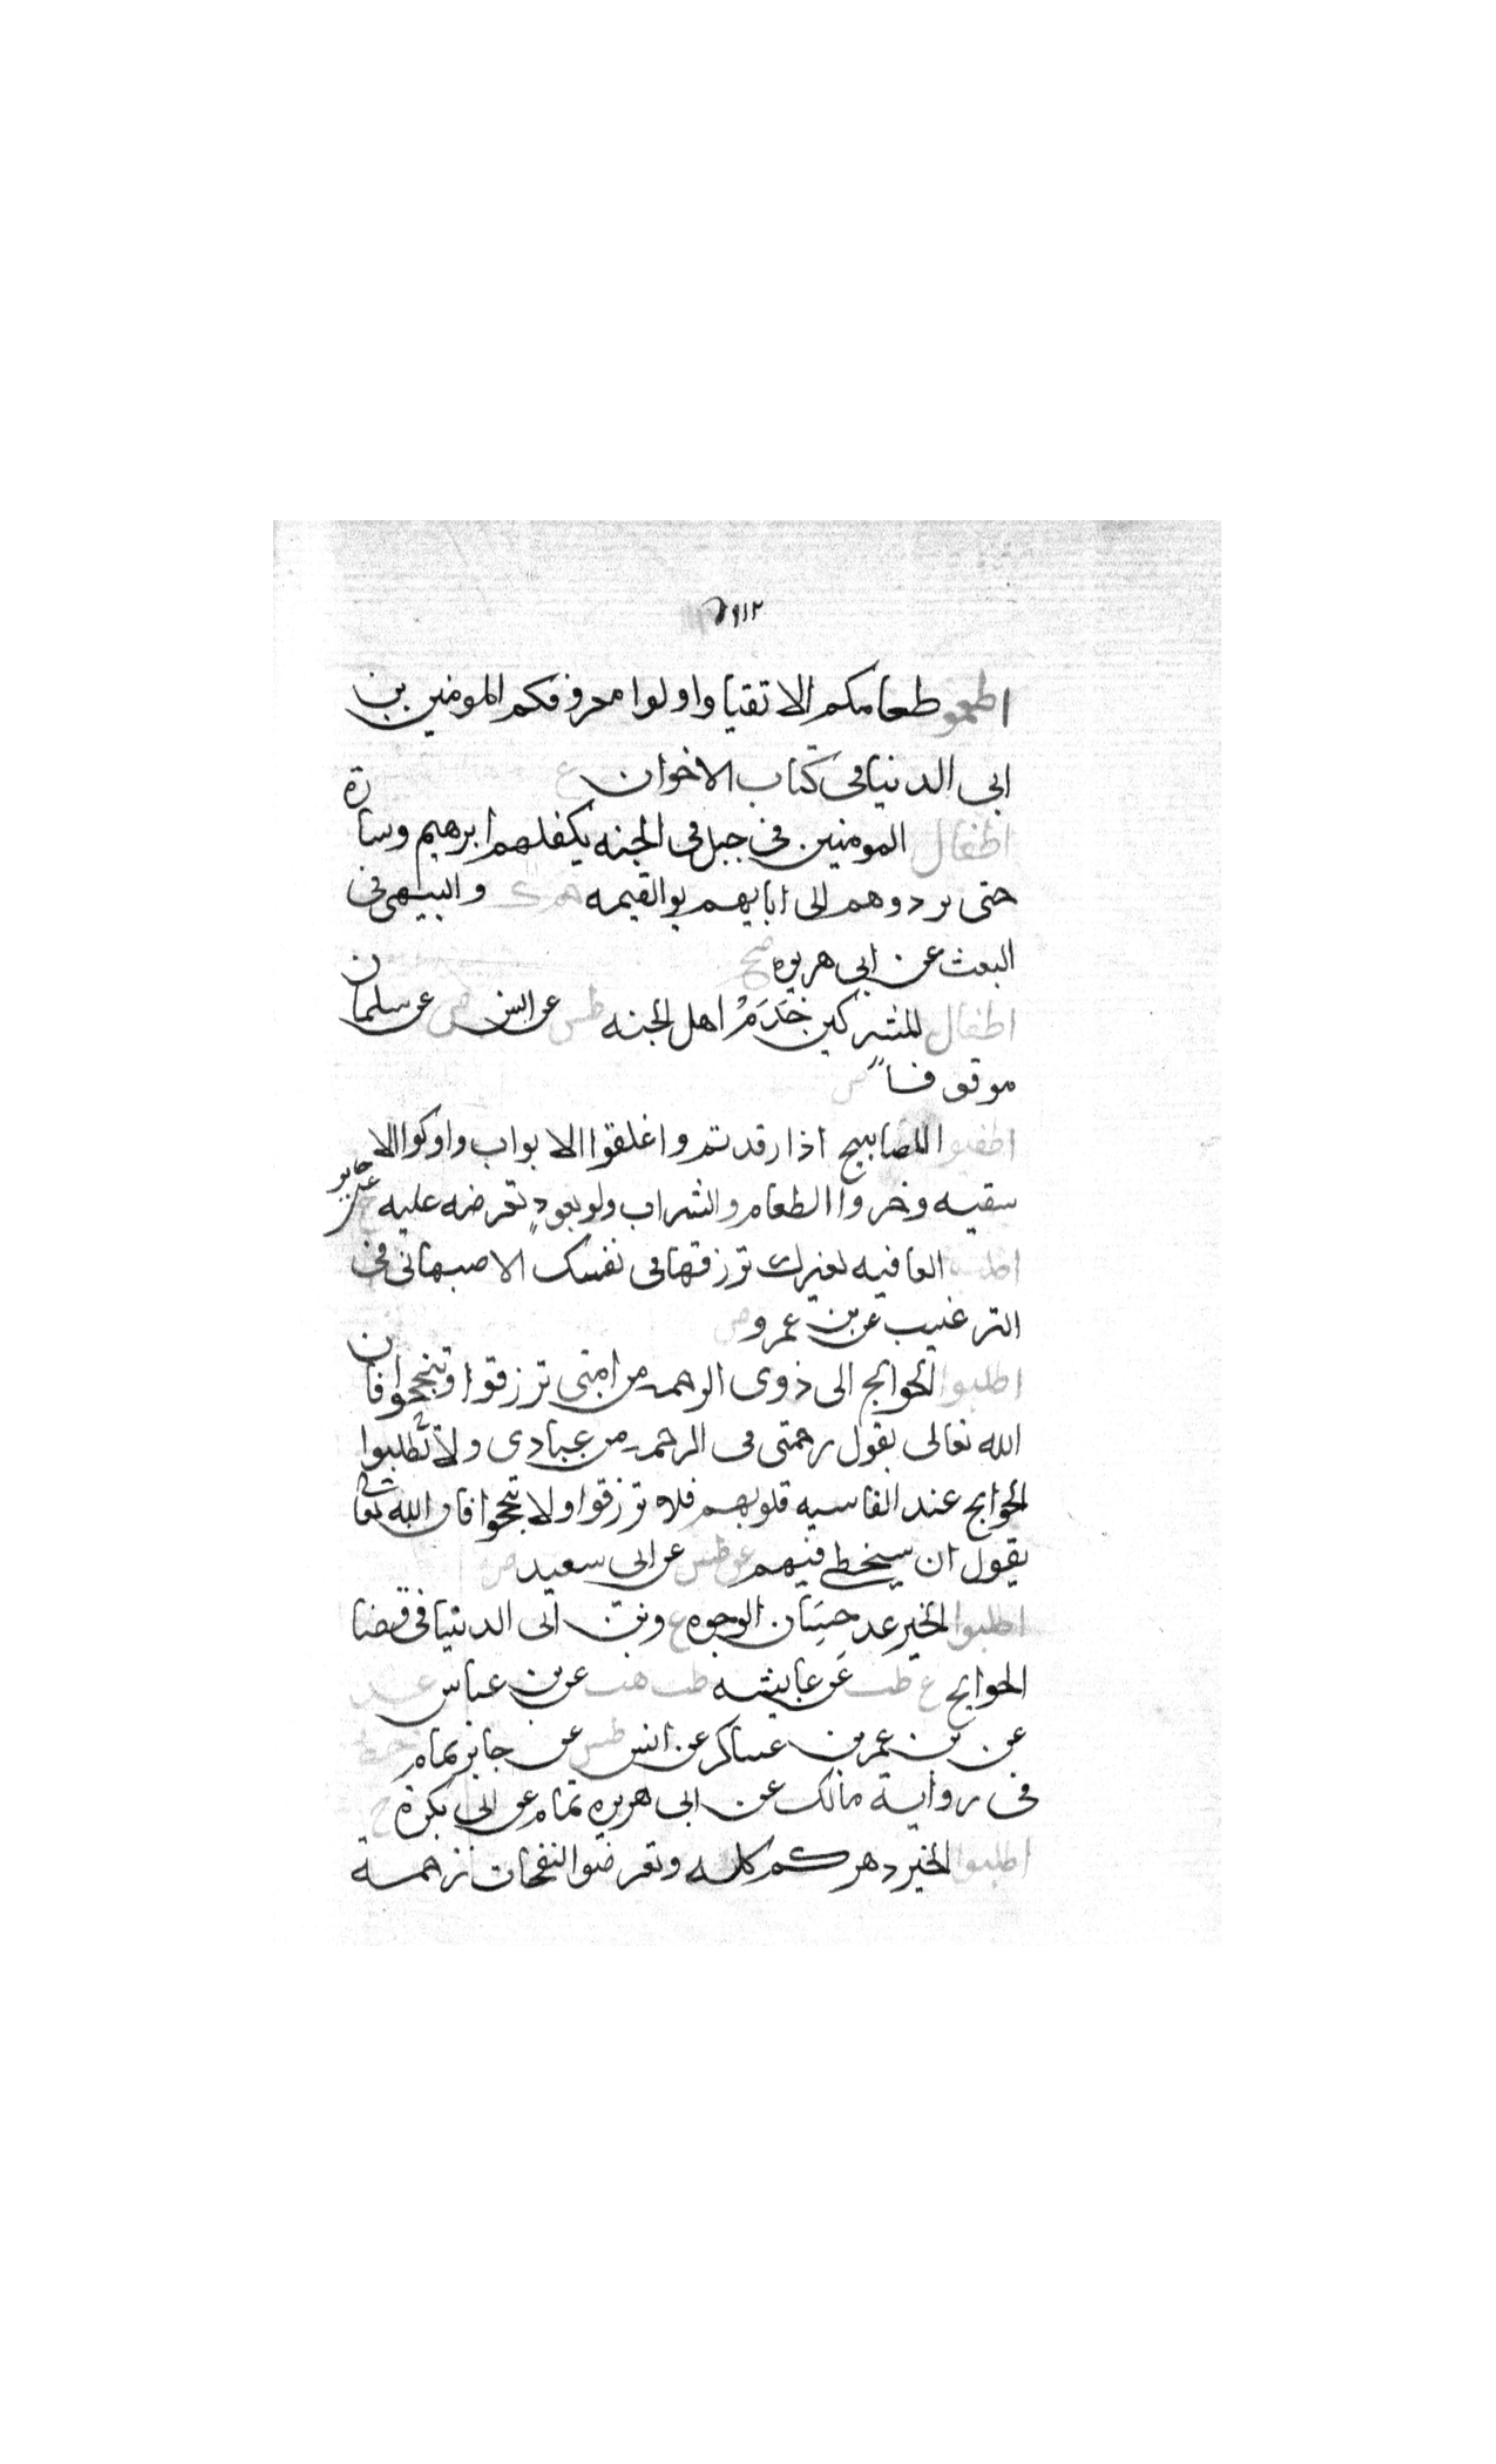 اطعمو طعامكم الاتقيا واولوا معروفكم المومنين بن
ابى الدنيا فى كتاب الاخوان ع
اطفال المومنين فى جبل فى الجنه يكفلهم ابرهيم وسارة
حتى يردوهم الى ابايهم يو القيمه حم ك والبيهى فى
البعث عن ابى هريره صح
اطفال المشركين خَدَمُ اهل الجنه طس عن انس ص عن سلمان
موقوفاً ص
اطفيوا المصابيح اذا رقدتم واغلقوا الابواب واوكوا الا
سقيه وخمروا الطعام والشراب ولو بعودٍ تعرضه عليه خ عن جابر
اطلب العافيه لغيرك ترزقها فى نفسك الاصبهانى فى
الترغيب عن بن عمرو ض
اطلبوا الحوايج الى ذوى الرحمه من امتى ترزقوا وتنجحوا فان
الله تعالى يقول رحمتى فى الرحمه من عبادى ولا تطلبوا
الحوايج عند القاسيه قلوبهم فلا ترزقوا ولا تنجحوا فان الله تعالى
يقول ان سخطى فيهم عق طس عن ابى سعيد ض
اطلبوا الخير عد حِسَان الوجوه وبن ابى الدنيا فى قضا
الحوايج ع طب عن عايشه طب هب عن بن عباس عد
عن بن عمر بن عساكر عن انس طس عن جابر تمام خط
فى رواية مالك عن ابى هريره تمام عن ابى بكرة ح
اطلبوا الخير دهركم كله وتعرضوا لنفحات رحمة